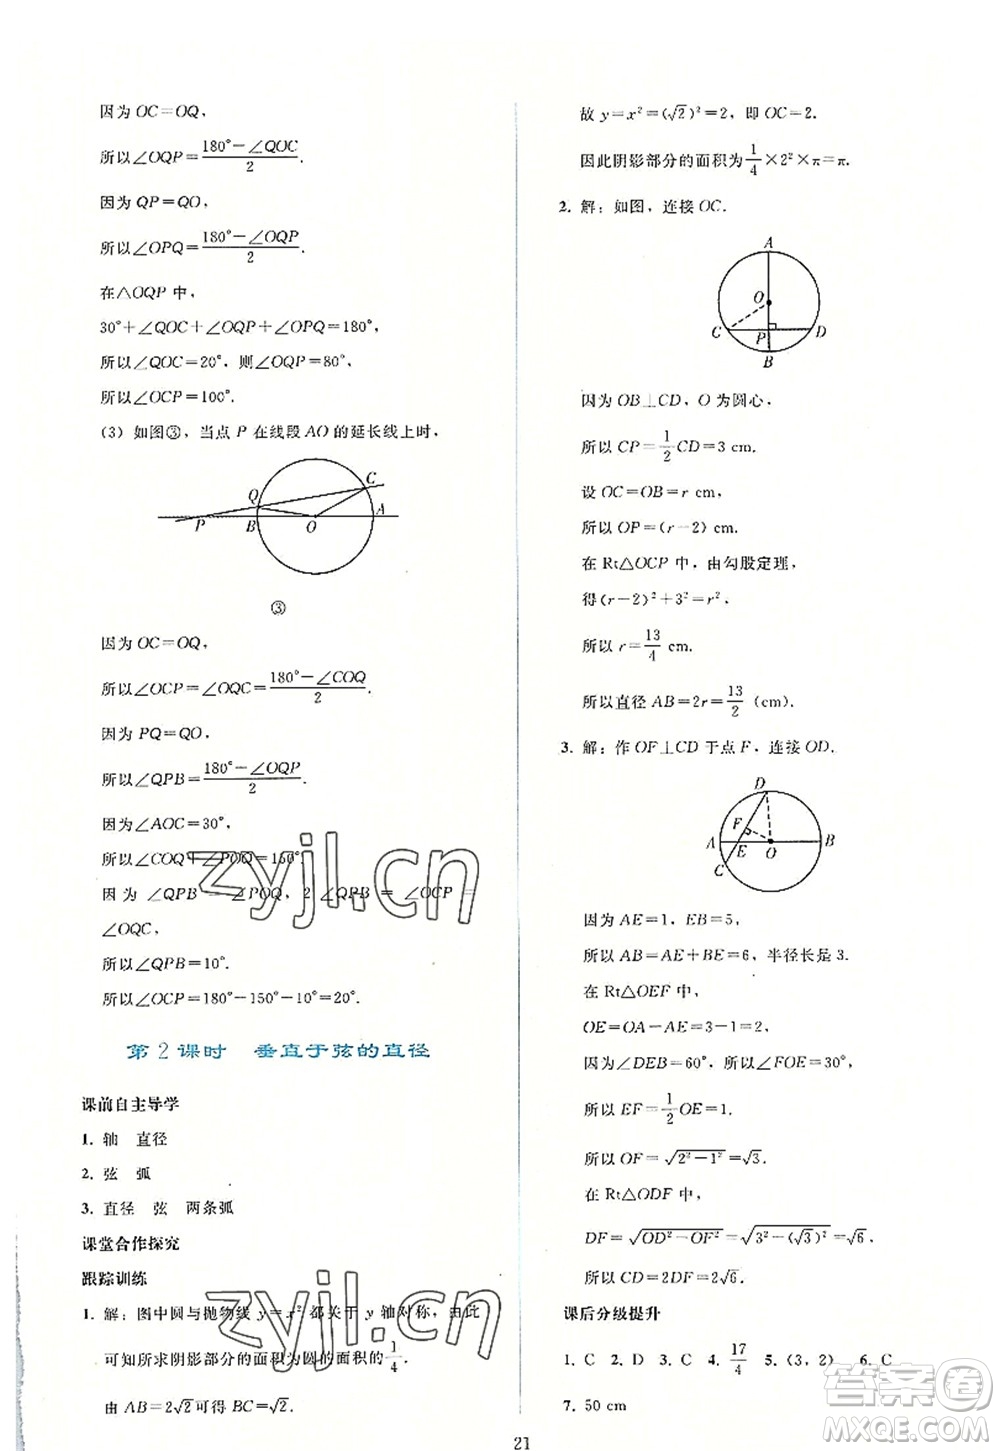 因为 OC=OQ,
所以∠OQP=(180°-∠QOC)/2.
因为 QP=QO,
所以∠OPQ=(180°-∠OQP)/2.
在△OQP 中,
30°+∠QOC+∠OQP+∠OPQ=180°,
所以∠QOC=20°, 则∠OQP=80°,
所以∠OCP=100°.
(3) 如图③, 当点 P 在线段 AO 的延长线上时,
C
Q
P B O A
③
因为 OC=OQ,
所以∠OCP=∠OQC=(180°-∠COQ)/2.
因为 PQ=QO,
所以∠QPB=(180°-∠OQP)/2.
因为∠AOC=30°,
所以∠COQ+∠POQ=150°.
因为 ∠QPB=∠POQ, 2∠QPB=
∠OQC,
所以∠QPB=10°.
所以∠OCP=180°-150°-10°=20°.
第 2 课时 垂直于弦的直径
课前自主导学
1. 轴 直径
2. 弦 弧
3. 直径 弦 两条弧
课堂合作探究
跟踪训练
1. 解: 图中圆与抛物线 y=x² 都关于 y 轴对称, 由此
可知所求阴影部分的面积为圆的面积的1/4.
由 AB=2√2可得 BC=√2.
故 y=x²=(√2)²=2, 即 OC=2.
因此阴影部分的面积为1/4×2²×π=π.
2. 解: 如图, 连接 OC.
A
O
C P D
B
因为 OB⊥CD, O 为圆心,
所以 CP=1/2CD=3 cm.
设 OC=OB=r cm,
所以 OP=(r-2) cm.
在 Rt△OCP 中, 由勾股定理,
得(r-2)²+3²=r².
所以 r=13/4 cm.
所以直径 AB=2r=13/2 (cm).
3. 解: 作 OF⊥CD 于点 F, 连接 OD.
D
F
A E O B
C
因为 AE=1, EB=5,
所以 AB=AE+BE=6, 半径长是 3.
在 Rt△OEF 中,
OE=OA-AE=3-1=2,
因为∠DEB=60°, 所以∠FOE=30°,
所以 EF=1/2OE=1.
所以 OF=√(2²-1²)=√3.
在 Rt△ODF 中,
DF=√(OD²-OF²)=√(3²-(√3)²)=√6,
所以 CD=2DF=2√6.
课后分级提升
1. C 2. D 3. C 4. 17/4 5. (3, 2) 6. C
7. 50 cm
21
zyjl.cn
zyjl.cn
答案圈
MXQE.COM